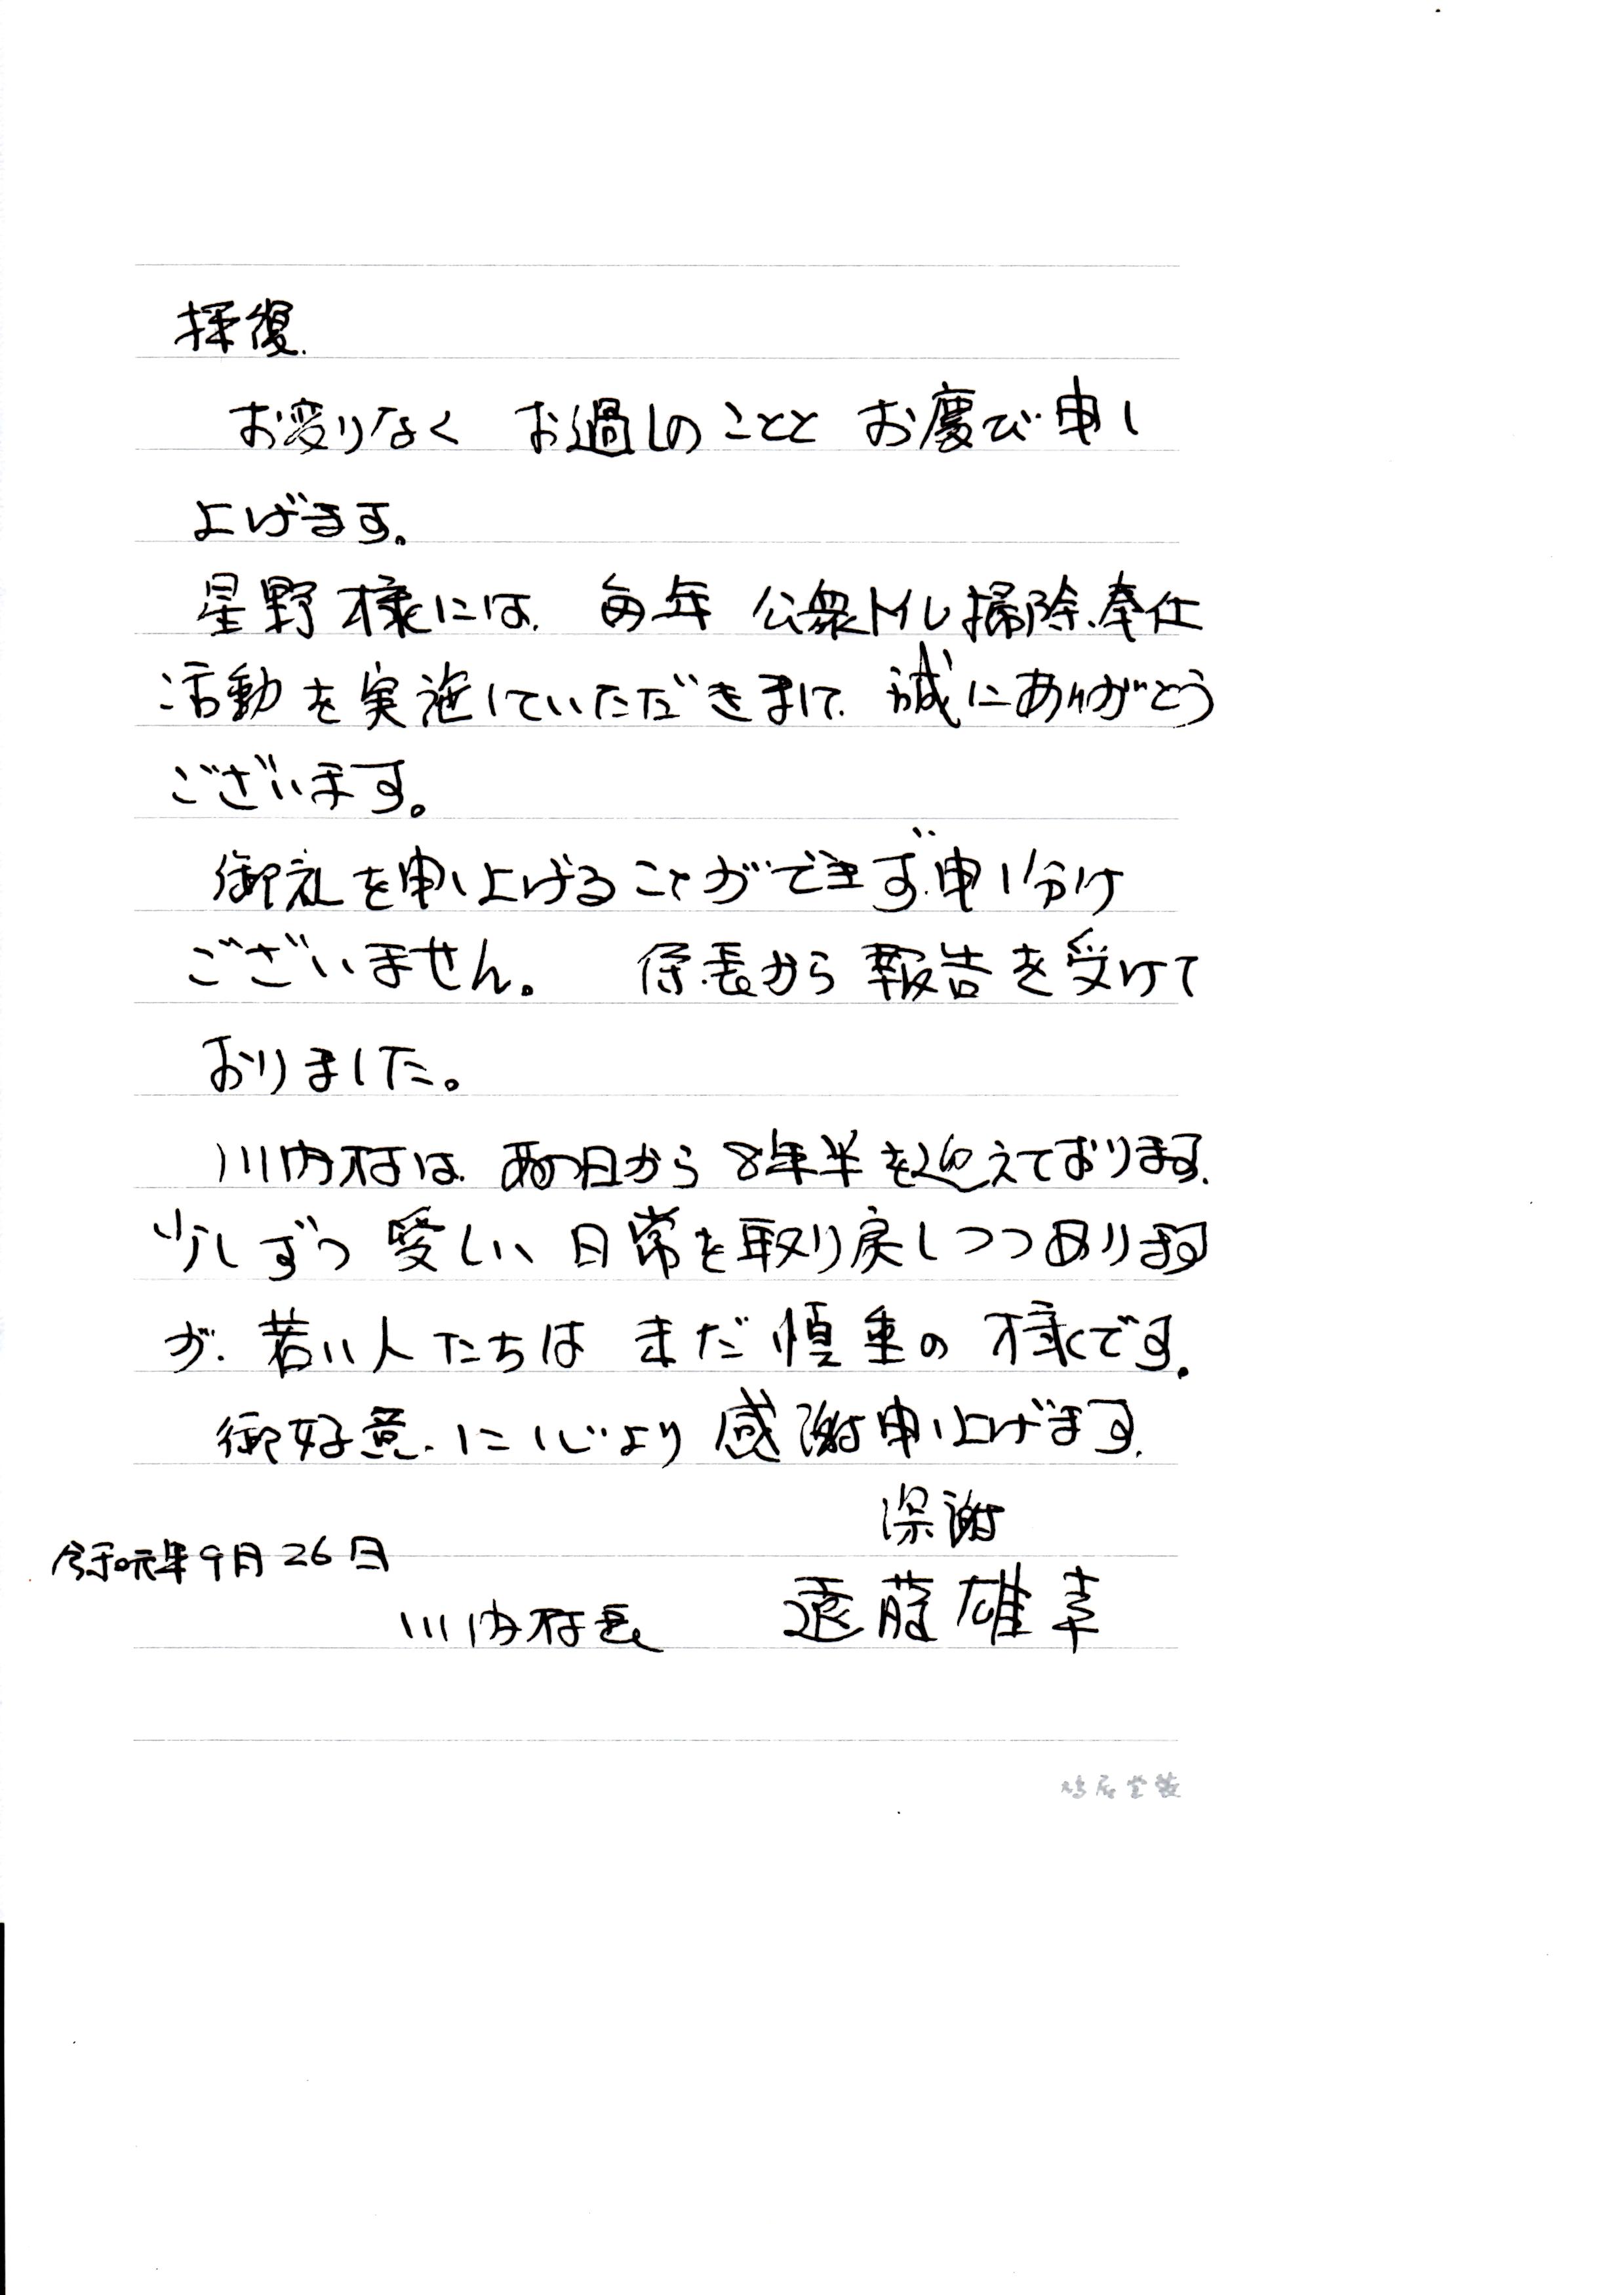 拝復.
お変りなく お過しのことと お慶び申し
上げます。
星野様には、毎年 公衆トイレ掃除、奉仕
活動を実施していただきまして、誠にありがとう
ございます。
御礼を申し上げることができず、申し分け
ございません。 係長から報告を受けて
おりました。
川内村は、あの日から8年半を迎えております.
少しずつ 愛しい 日常を取り戻しつつあります
が、若い人たちは まだ慎重の様です。
御好意に心より感謝申し上げます.
深謝
令和元年9月26日
川内村長 遠藤雄幸
鳩居堂製